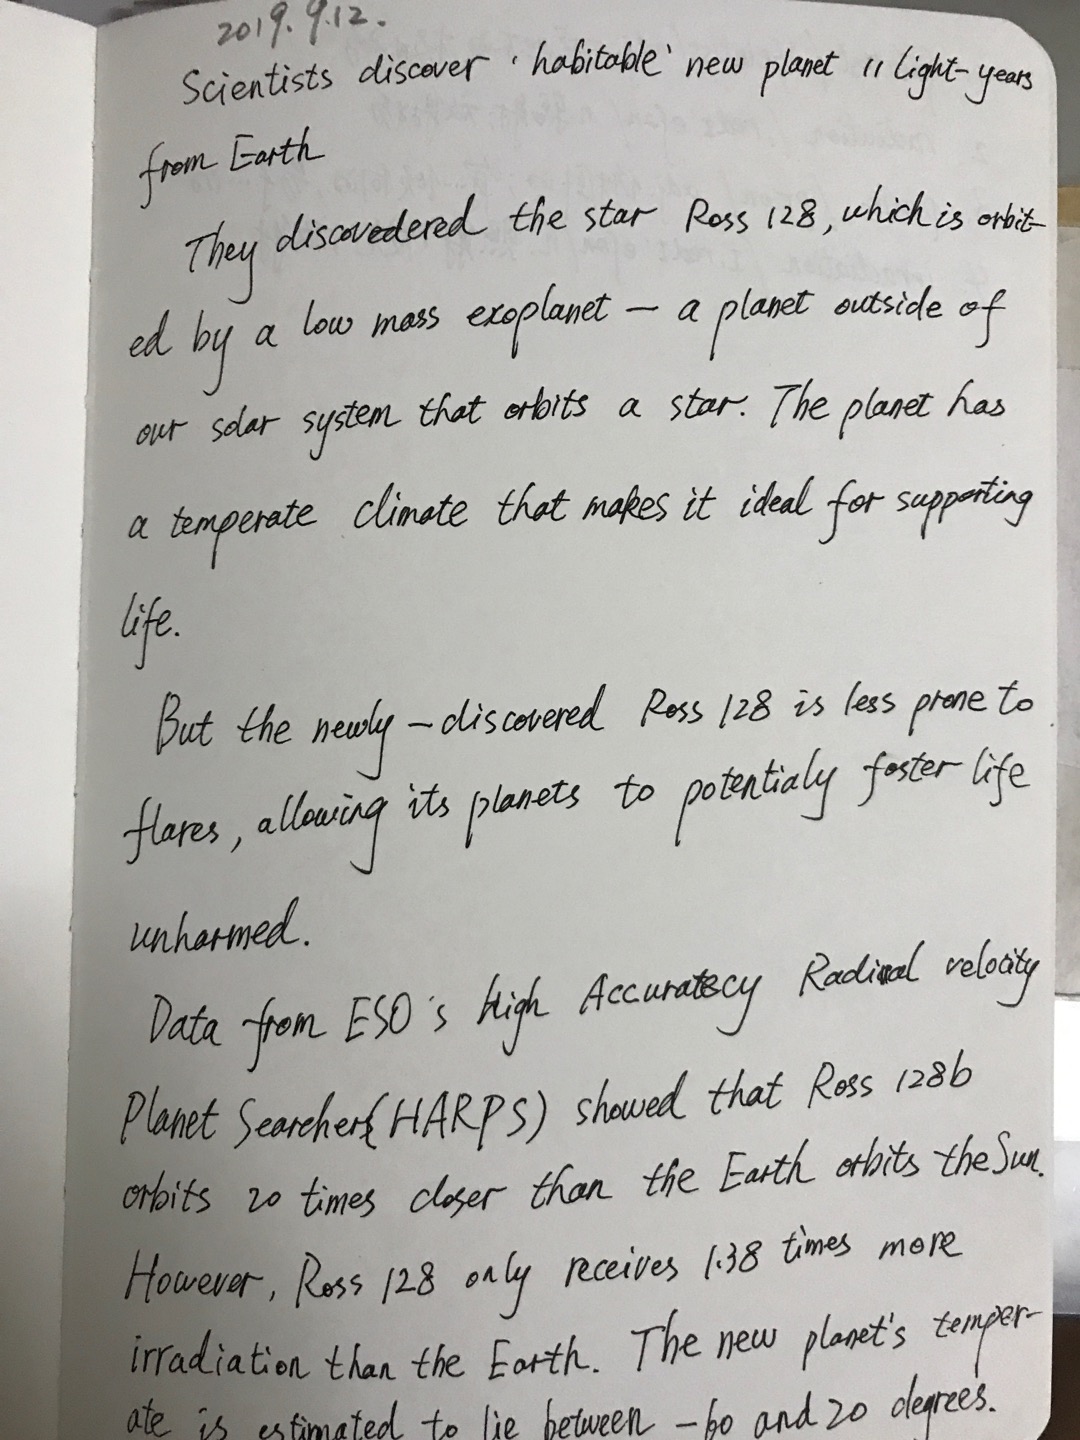 2019.9.12.
Scientists discover 'habitable' new planet 11 light-years
from Earth
They discovedered the star Ross 128, which is orbit-
ed by a low mass exoplanet — a planet outside of
our solar system that orbits a star. The planet has
a temperate climate that makes it ideal for supporting
life.
But the newly-discovered Ross 128 is less prone to
flares, allowing its planets to potentialy foster life
unharmed.
Data from ESO's High Accuratecy Radial velocity
Planet Searcher (HARPS) showed that Ross 128b
orbits 20 times closer than the Earth orbits the Sun.
However, Ross 128 only receives 1.38 times more
irradiation than the Earth. The new planet's temper-
ate is estimated to lie between -60 and 20 degrees.